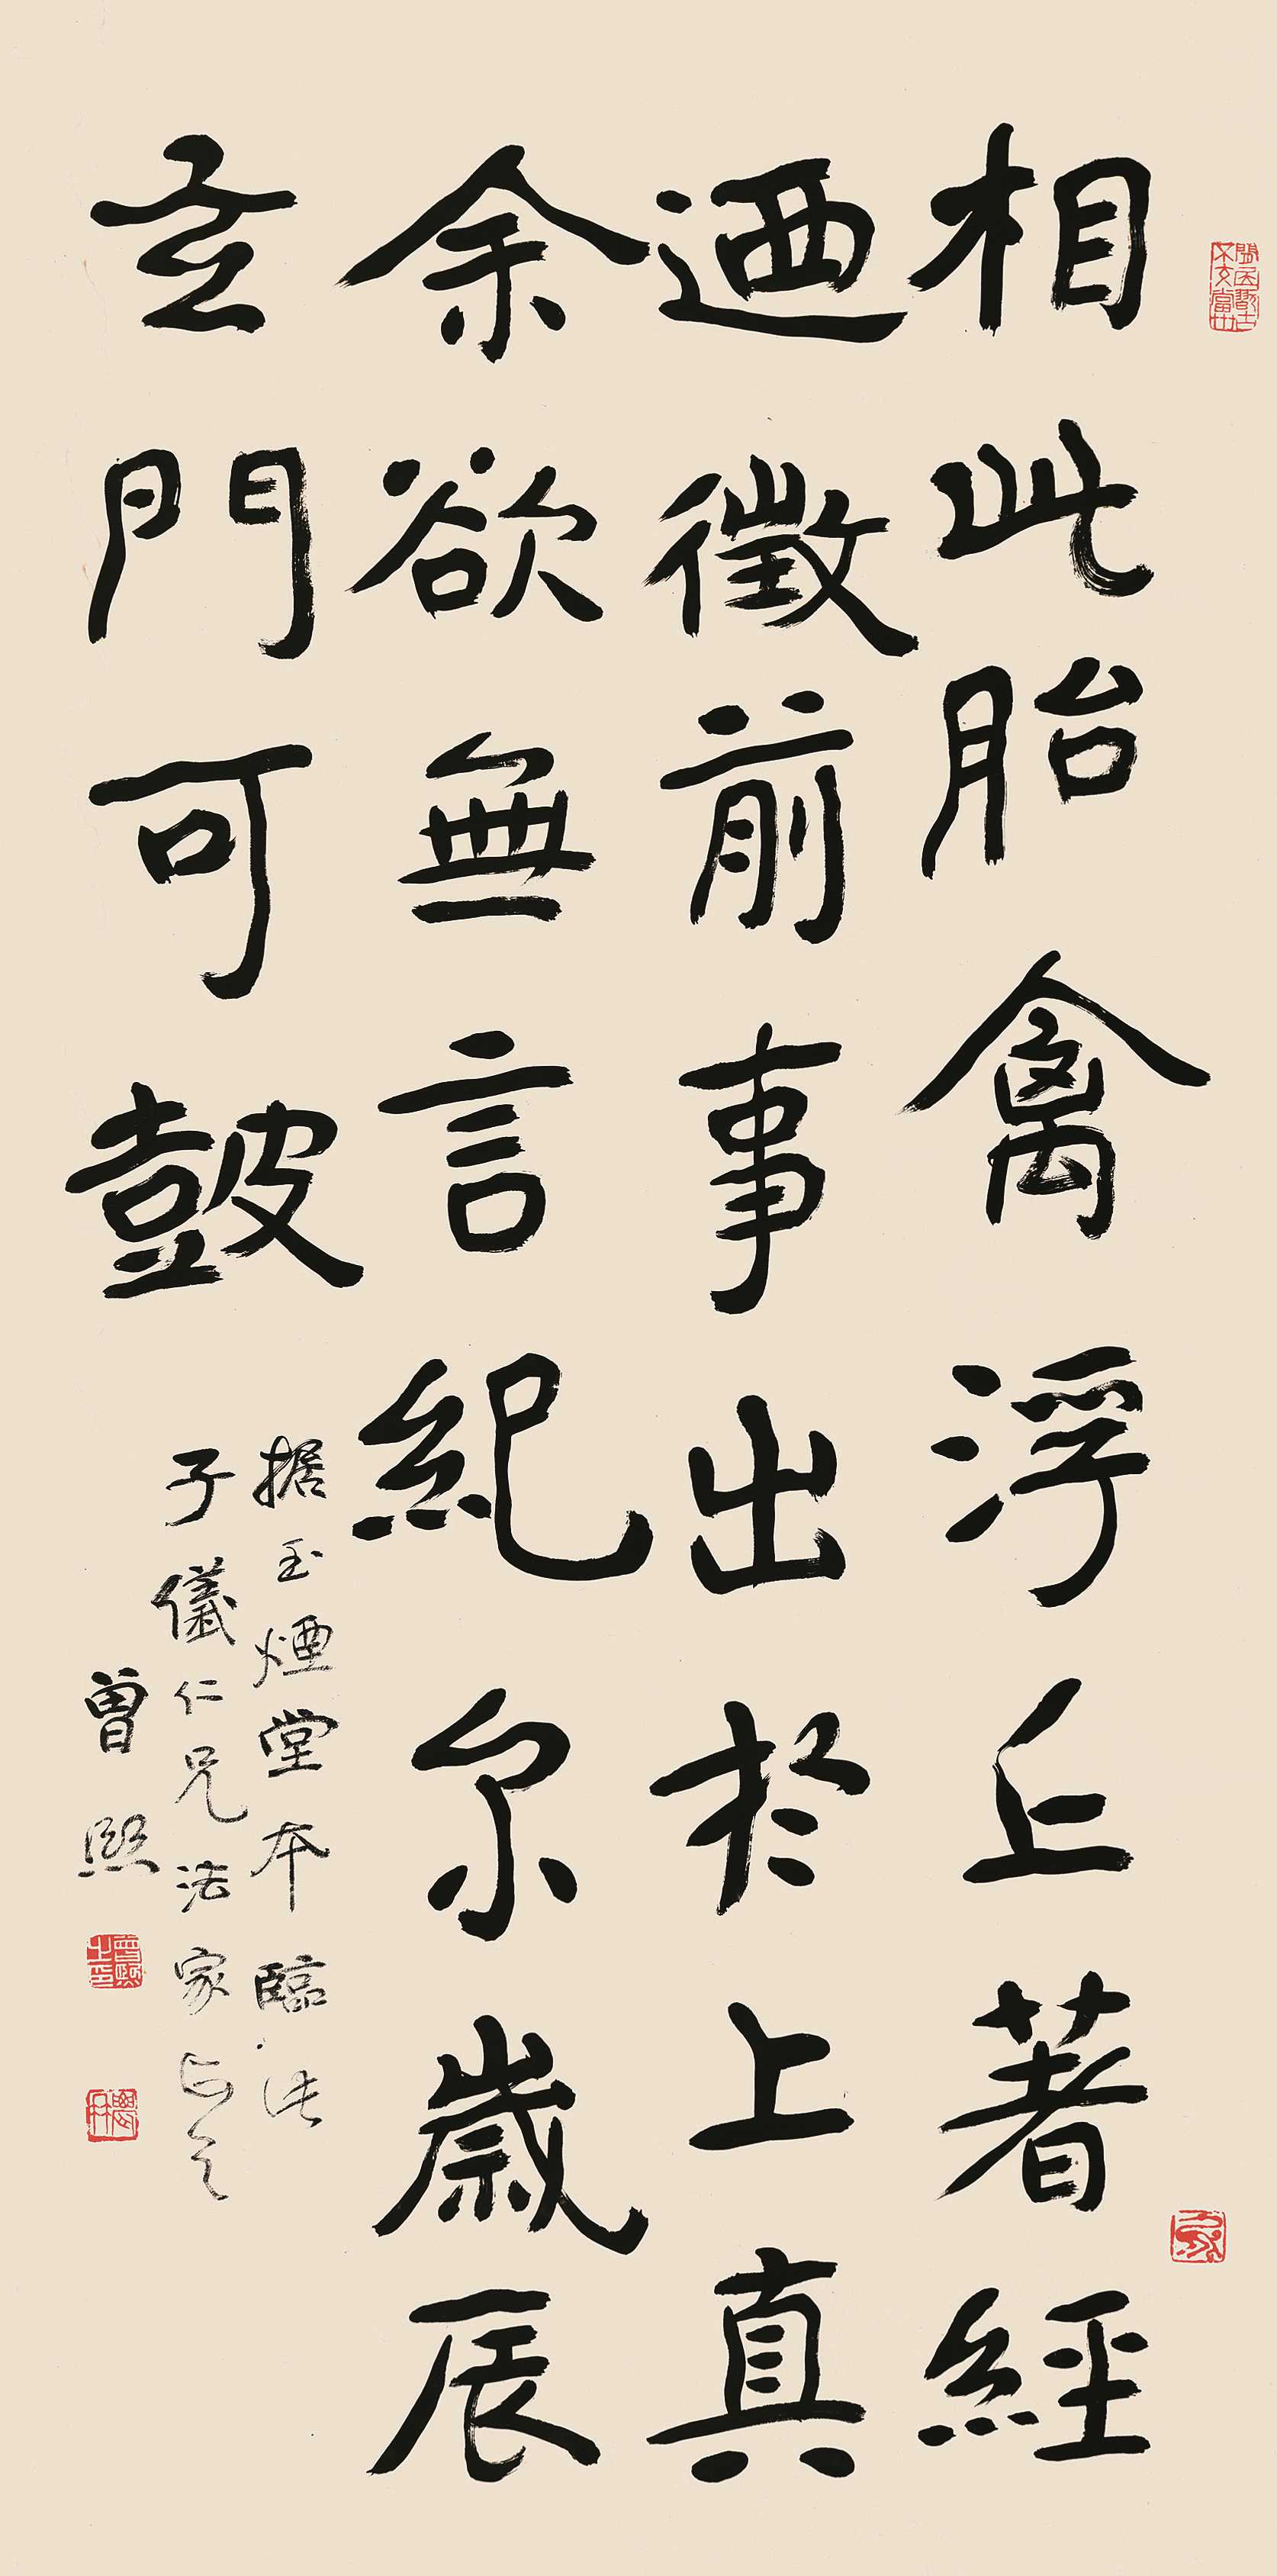 相此胎禽浮丘著經
迺徵前事出於上真
余欲無言紀尔歲辰
玄門可皷
据玉煙堂本臨
子儀仁兄法家正之
曾熙
曾熙之印
農髯